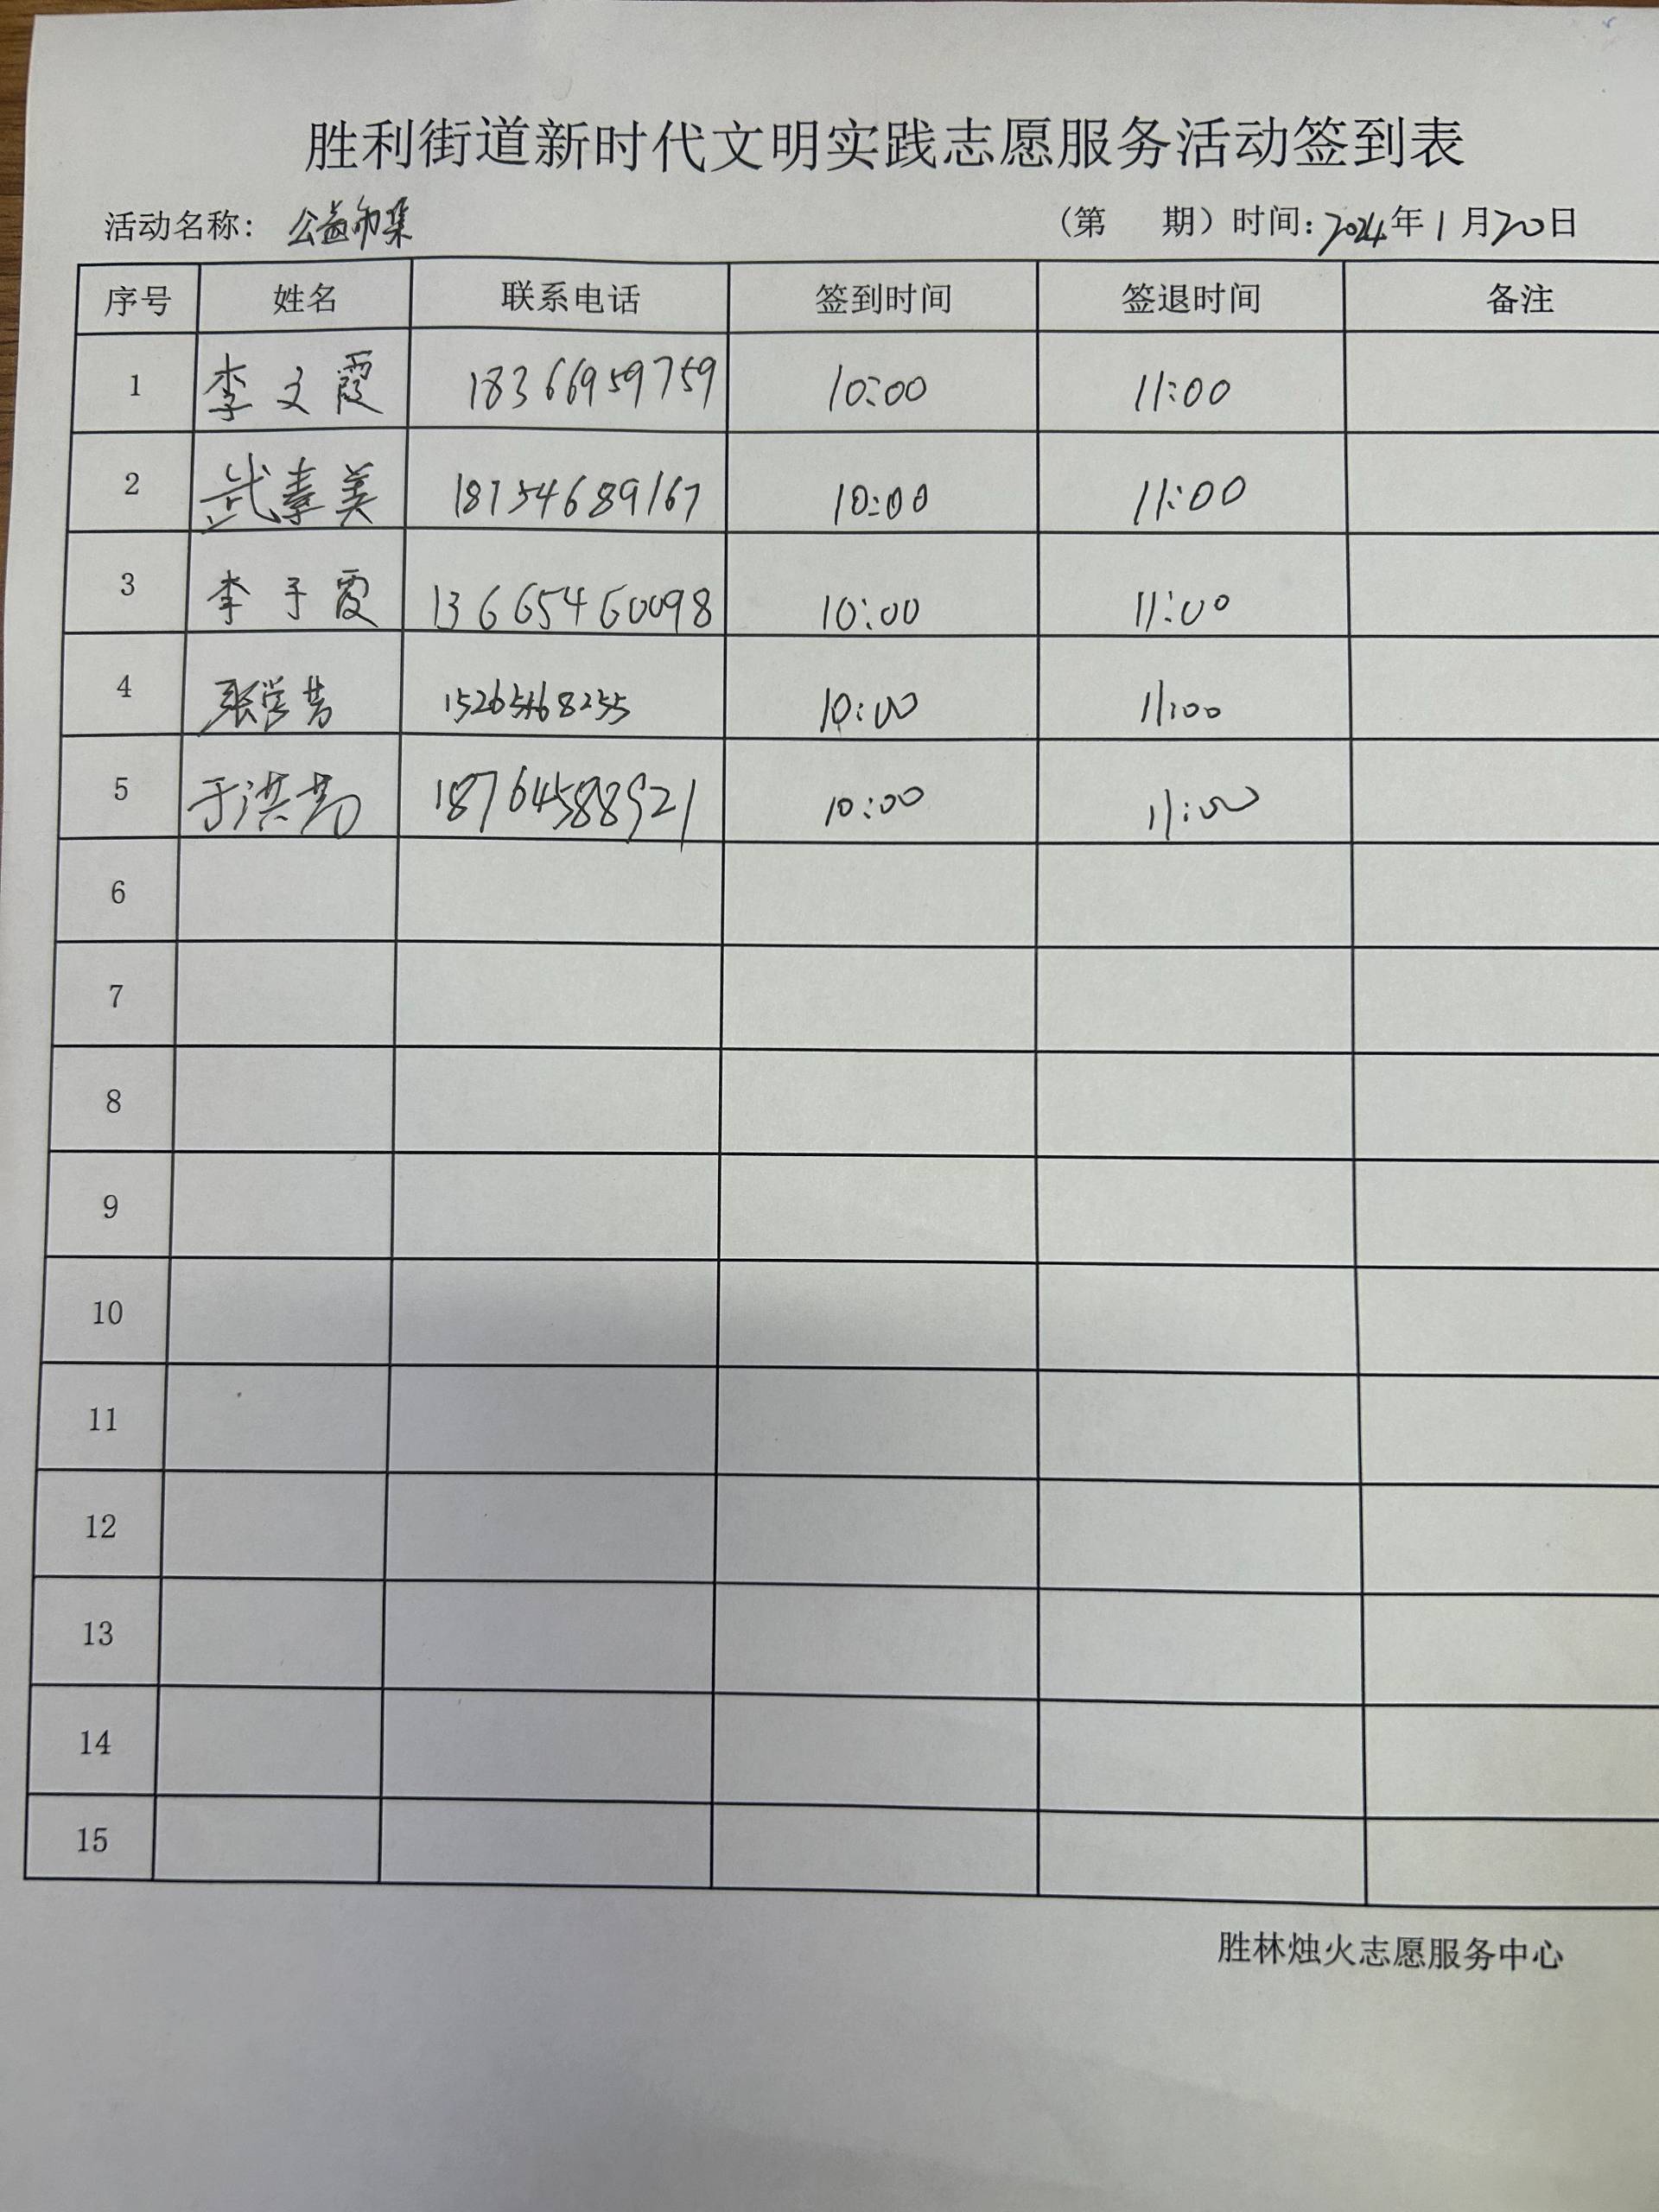 胜利街道新时代文明实践志愿服务活动签到表
活动名称：公益市集 （第 期）时间：2024年1月20日
序号 姓名 联系电话 签到时间 签退时间 备注
1 李文霞 18366959759 10:00 11:00
2 武素美 18754689167 10:00 11:00
3 李于霞 13665460098 10:00 11:00
4 张学芳 15265468255 10:00 11:00
5 于洪芳 18764588921 10:00 11:00
6
7
8
9
10
11
12
13
14
15
胜林烛火志愿服务中心